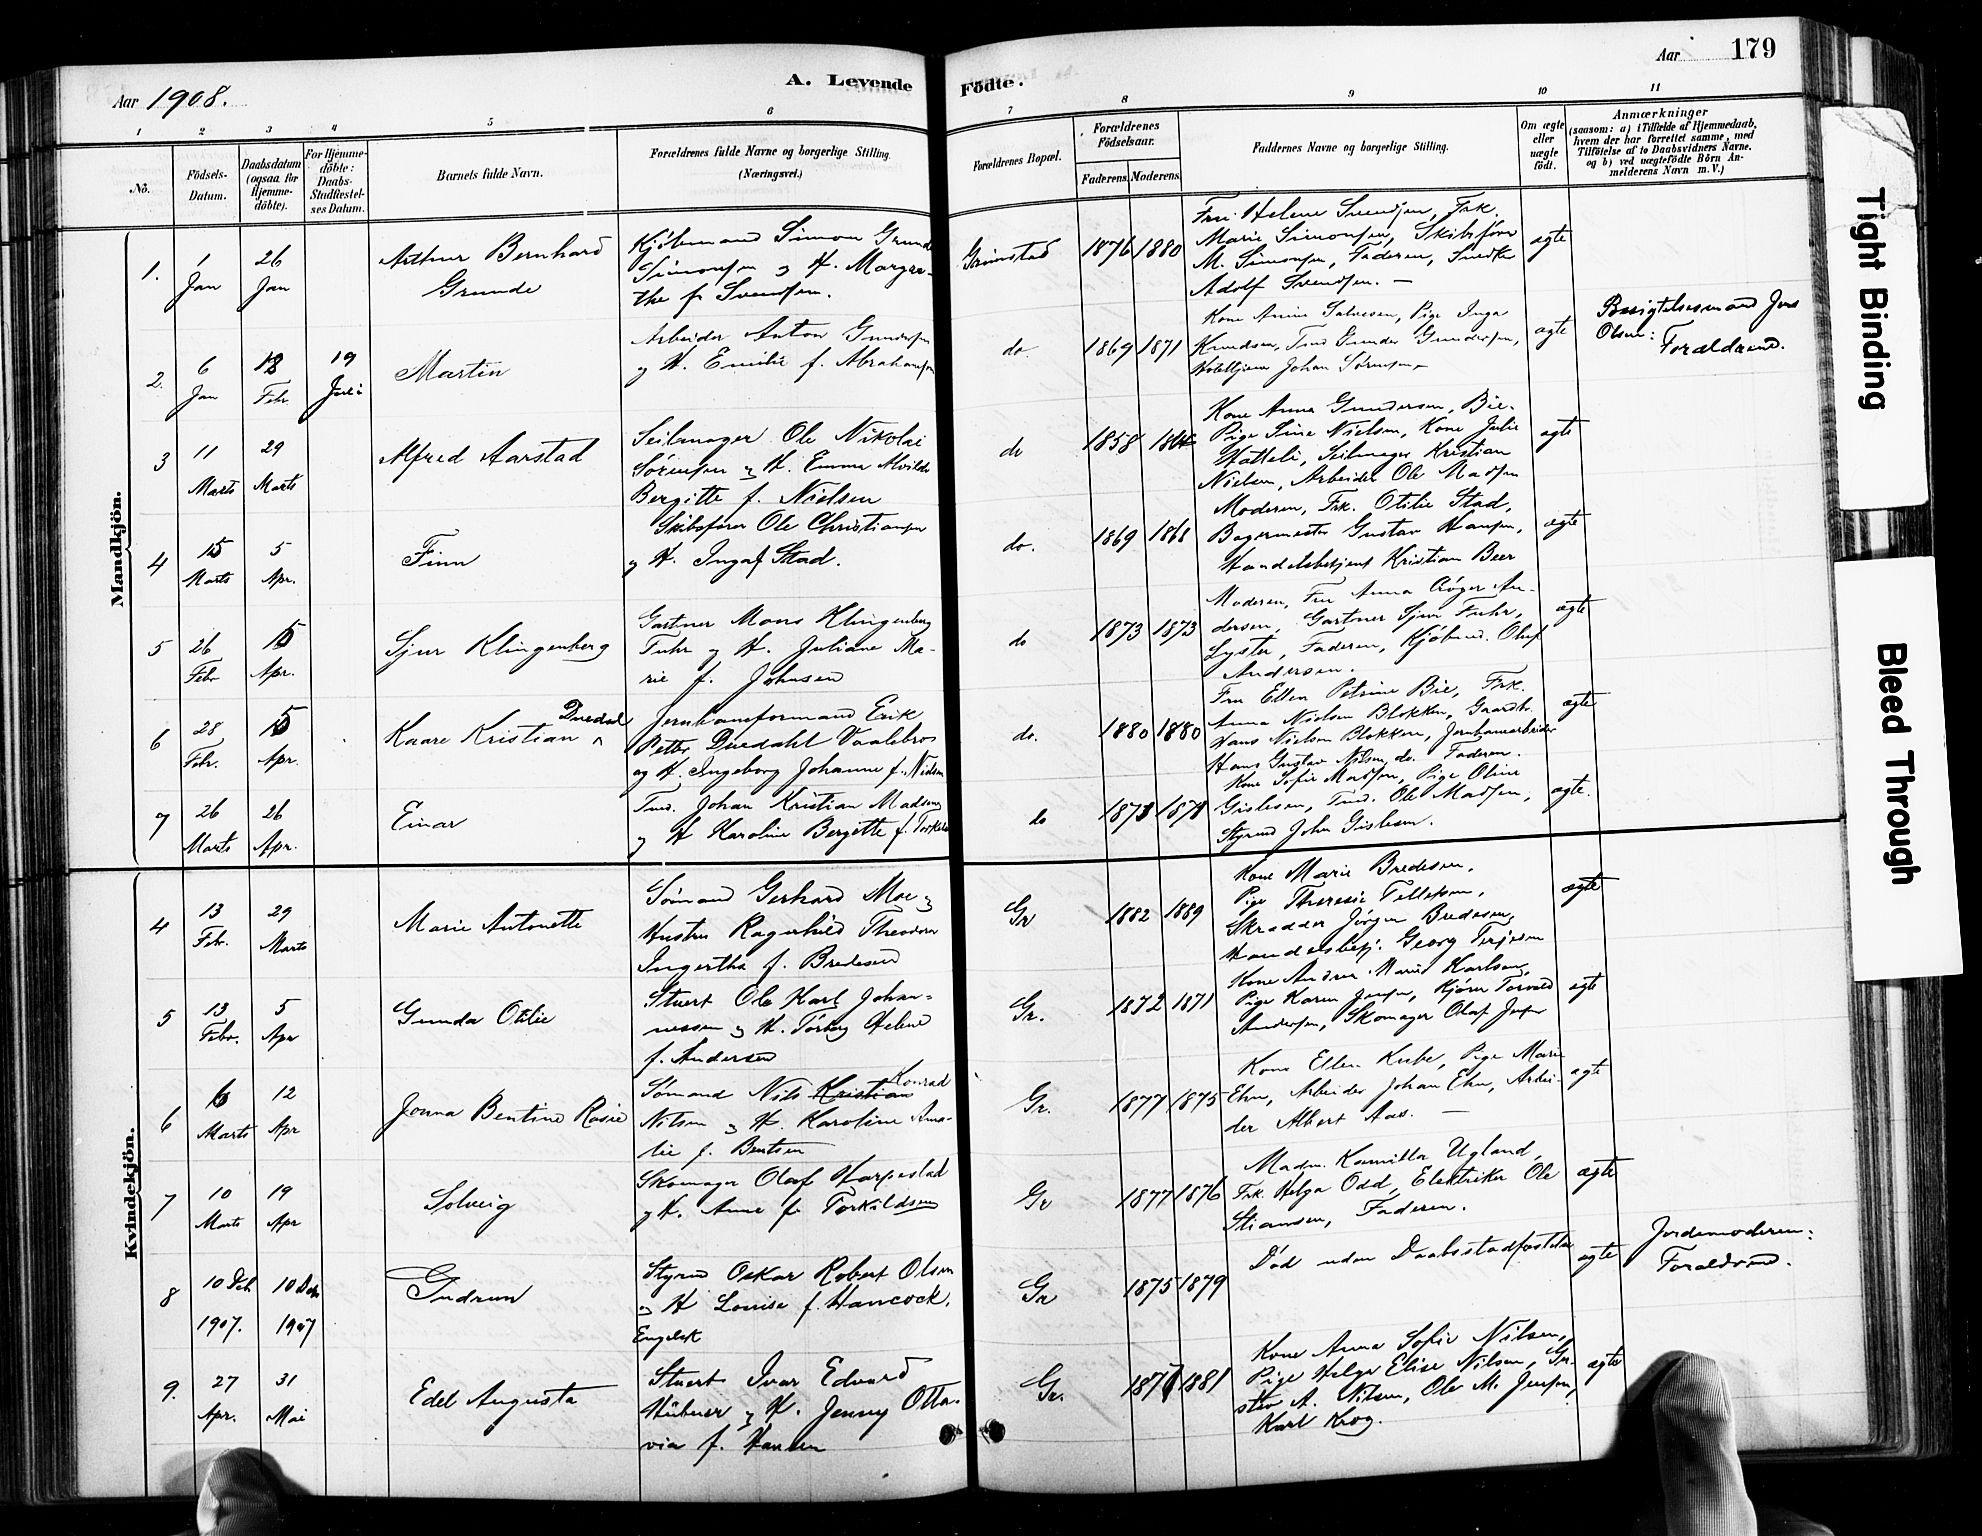 Aar 1908.
A. Levende
Födte.
Aar 179
1 2 3 4 5 6 7 8 9 10 11
No.
Födsels-
Datum.
Daabsdatum
(ogsaa for
Hjemme-
döbte).
For Hjemme-
döbte:
Daabs-
Stadfæstel-
ses Datum.
Barnets fulde Navn.
Forældrenes fulde Navne og borgerlige Stilling.
(Næringsvei.)
Forældrenes Bopæl.
Forældrenes
Födselsaar.
Faderens.
Moderens.
Faddernes Navne og borgerlige Stilling.
Om ægte
eller
uægte
födt.
Anmærkninger
(saasom: a) i Tilfælde af Hjemmedaab,
hvem der har forrettet samme, med
Tilföielse af to Daabsvidners Navne.
og b) ved uægtefödte Börn An-
melderens Navn m. V.)
Mandkjön.
1. 1 Jan 26 Jan
Arthur Bernhard
Grunde
Kjøbmand Simon Grunde
Simonsen og H. Margre-
the f. Svendsen.
Grimstad 1876 1880
Fru Helene Svendsen, Frk.
Marie Simonsen, Skibsfører
M. Simonsen, Faderen, Snedker
Adolf Svendsen. —
ægte
2. 6 Jan 12 Febr. 19 Juli
Martin
Arbeider Anton Gundersen
og H. Emilie f. Abrahamsen
do. 1869 1871
Kone Annie Salvesen, Pige Inga
Knudsen, Tmd Gunder Gundersen,
Johan Sørensen
ægte
Besigtelsesmand Jens
Olsen:
Forældrene.
3 11 Marts 29 Marts
Alfred Aarstad
Seilmager Ole Nikolai
Sørensen og H. Emma Alvilde
Bergitte f. Nielsen
do 1858
Kone Anna Gundersen, Bie.
Pige Sina Nielsen, Kone Julie
Hatteli, Seilmager Kristian
Nielsen, Arbeider Ole Madsen
ægte
4 15 Marts 5 Apr.
Finn
Skibsfører Ole Christiansen
og H. Inga f Stad.
do. 1869 1868
Moderen, Frk. Otilie Stad,
Bagermester Gustav Hansen,
Handelsbetjent Kristian Beer
ægte
5 26 Febr 5 Apr.
Sjur Klingenberg
Gartner Mons Klingenberg
Fuhr og H. Juliane Ma-
rie f. Johnsen
do 1873 1873
Moderen, Fru Anna Crøger An-
dersen, Gartner Sjur Fuhr,
Lyster, Faderen, Kjøbmd. Oluf
Andersen.
ægte
6 28 Febr. 5 Apr.
Kaare Kristian Duedal
Jernbaneformand Erik
Petter Duedahl Vaalebro
og H. Ingeborg Johanne f. Nielsen
do. 1880 1880
Fru Ellen Petrine Bie, Frk.
Anna Nielsen Blokken, Gaardbr.
Hans Nielsen Blokken, Jernbanearbeider
Hans Gustav Nilsen do. Faderen.
ægte
7 26 Marts 26 Apr.
Einar
Tmd. Johan Kristian Madsen
og H Karoline Bergitte f. Torkels
do 1873 1878
Kone Sofie Madsen, Pige Oline
Gislesen, Tmd. Ole Madsen,
Styrmd John Gislesen.
ægte.
Kvindekjön.
4 13 Febr. 29 Marts
Marie Antonette
Sømand Gerhard Moe og
Hustru Ragnhild Theodora
Ingertha f. Bredesen
Gr 1882 1889
Kone Marie Bredesen,
Pige Theresie Tellefsen,
Skrædder Jørgen Bredesen,
Handelsbetj. Georg Terjesen
ægte
5 13 Febr. 5 Apr
Gunda Otilie
Stuert Ole Karl Johan-
nessen og H. Torborg Helene
f. Andersen
Gr. 1872 1871
Kone Andrea Marie Karlsen,
Pige Karen Jensen, Kjører Torvald
Andersen, Skomager Olaf Jensen
ægte
6 6 Marts 12 Apr
Jonna Bentine Rosie
Sømand Nils Kristian Konrad
Nilsen og H. Karoline Ama-
lie f. Bentsen
Gr. 1877 1875
Kone Ellen Kube, Pige Marie
Ehn, Arbeider Johan Ehn, Arbei-
der Albert Aas. —
ægte
7 10 Marts 19 Apr
Solveig
Skomager Olaf Harpestad
og H. Anne f. Torkildsen
Gr 1877 1876
Madm. Kamilla Ugland,
Frk. Helga Odd, Elektriker Ole
Stiansen, Faderen.
ægte
8 10 Deb 1907. 10 Deb 1907
Gudrun
Styrmd Oskar Robert Olsen
og H Louise f. Hancock.
Engelsk
Gr 1875 1879
Død uden Daabsstadfæstelse
ægte
Jordemoderen:
Forældrene.
9. 27 Apr. 31 Mai
Edel Augusta
Stuert Ivar Edvard
Hübner og H. Jenny Otta-
via f. Hansen
Gr. 1871 1881
Kone Anna Sofie Nilsen,
Pige Helga Elise Nilsen, Gu-
stav A. Nilsen, Ole M. Jensen,
Karl Krog.
ægte
Tight Binding
Bleed Through